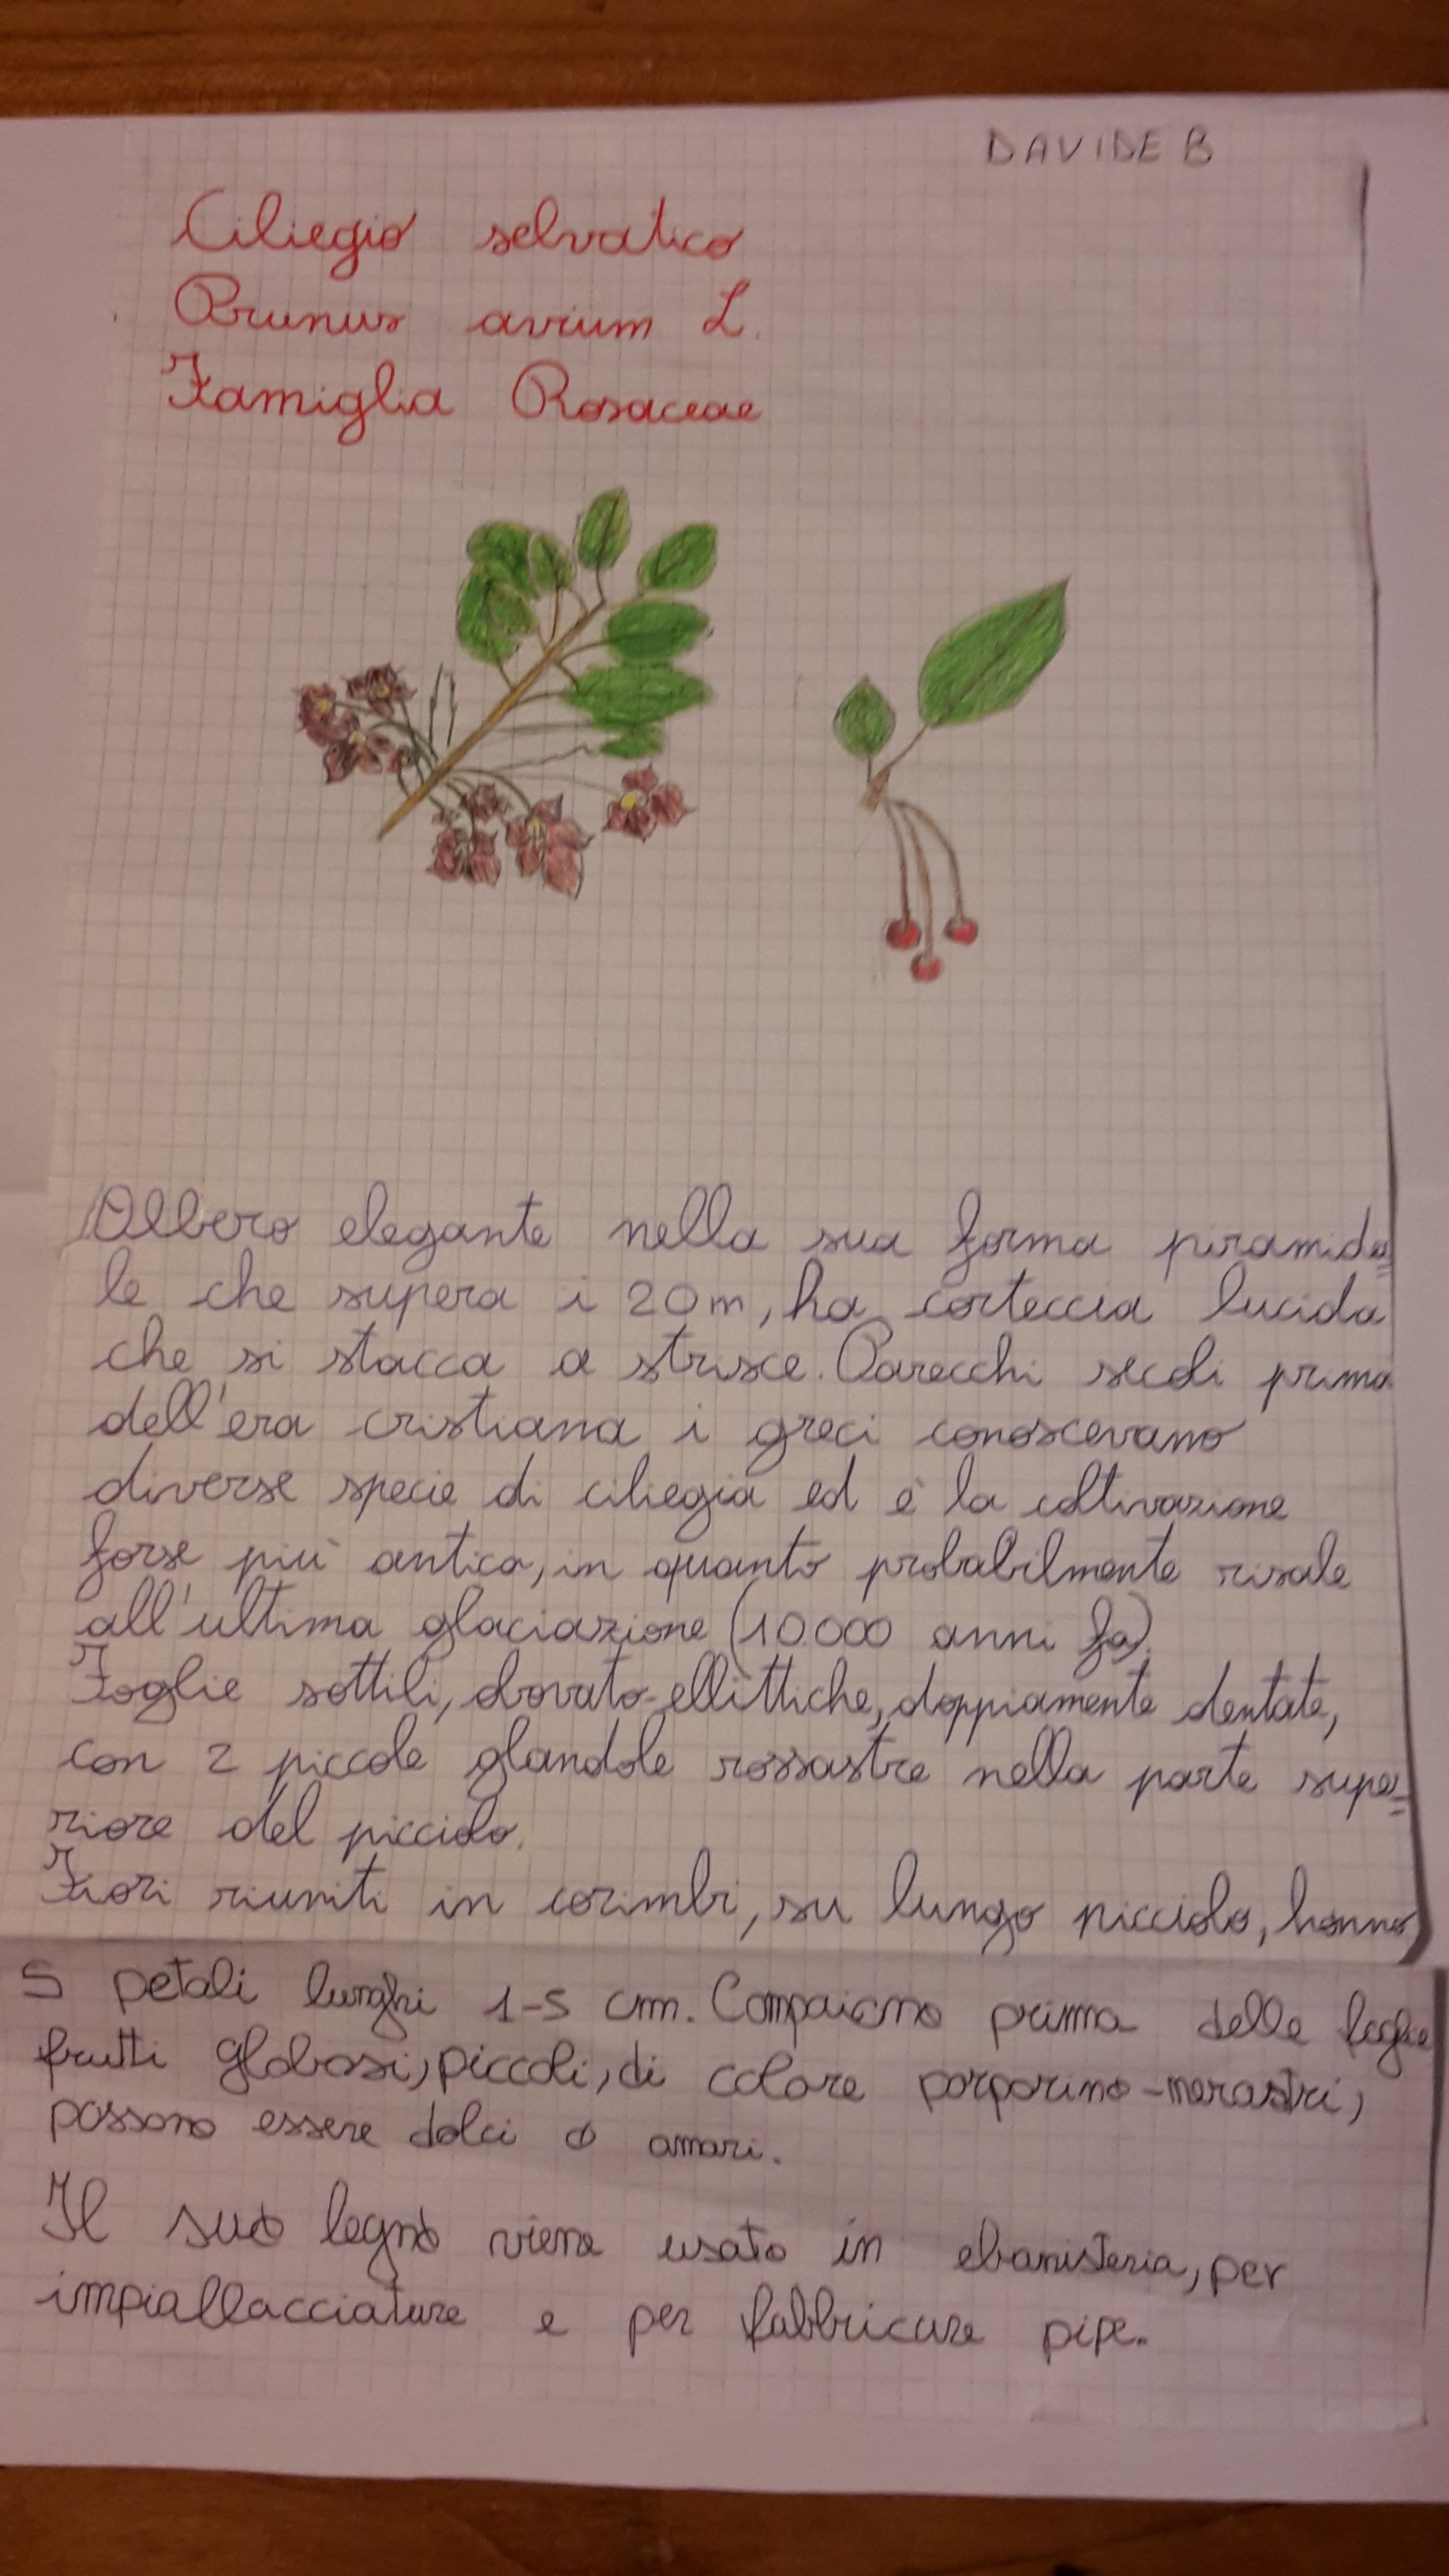 DAVIDE B
Ciliegio selvatico
Prunus avium L.
Famiglia Rosaceae
Albero elegante nella sua forma piramida=
le che supera i 20 m, ha corteccia lucida
che si stacca a strisce. Parecchi secoli prima
dell'era cristiana i greci conoscevano
diverse specie di ciliegia ed è la coltivazione
forse più antica, in quanto probabilmente risale
all'ultima glaciazione (10.000 anni fa).
Foglie sottili, obovato-ellittiche, doppiamente dentate,
con 2 piccole glandole rossastre nella parte supe=
riore del picciolo.
Fiori riuniti in corimbi, su lungo picciolo, hanno
5 petali lunghi 1-5 cm. Compaiono prima delle foglie
frutti globosi, piccoli, di colore porporino-nerastri,
possono essere dolci o amari.
Il suo legno viene usato in ebanisteria, per
impiallacciature e per fabbricare pipe.